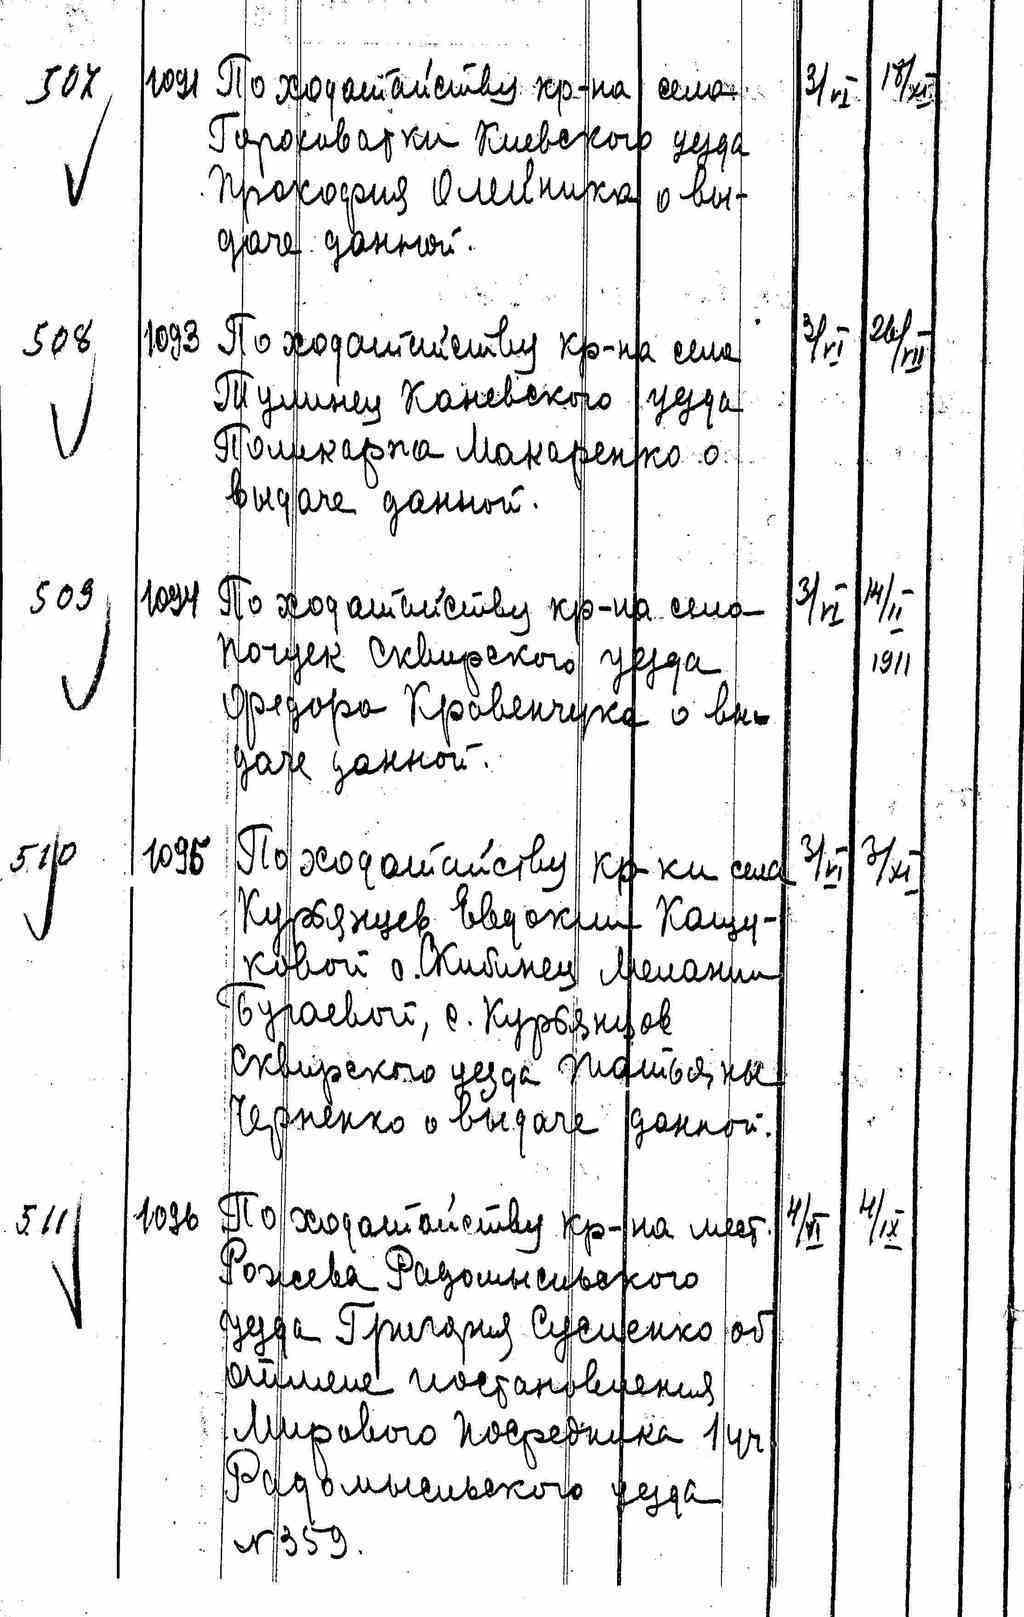 507 1091 По ходатайству кр-на села 3/VI 18/XI
Гороховатки Киевского уезда
Прокофия Олейника о вы-
даче данной.
508 1093 По ходатайству кр-на села 3/VI 26/VII
Тулинец Каневского уезда
Поликарпа Макаренко о
выдаче данной.
509 1094 По ходатайству кр-на села 3/VI 14/II
Почуек Сквирского уезда 1911
Федора Кравенчука о вы-
даче данной.
510 1095 По ходатайству кр-ки села 3/VI 3/XI
Курьянцев Евдокии Кащу-
ковой с. Скибинец Мелании
Бугаевой, с. Курьянцов
Сквирского уезда Татьяны
Черненко о выдаче данной.
511 1096 По ходатайству кр-на мест. 4/VI 4/IX
Рожева Радомысльского
уезда Григория Сусленко об
отмене постановления
Мирового Посредника 1 уч
Радомысльского уезда
№ 359.